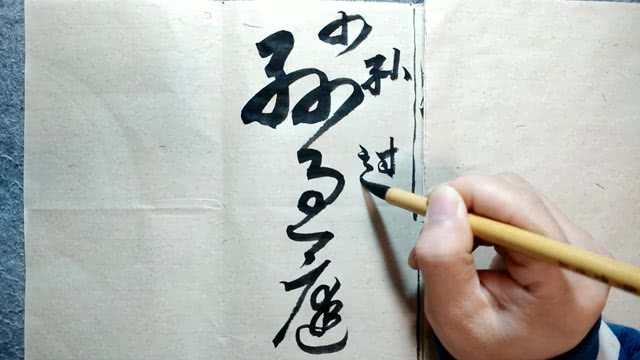 孙过
孙过庭